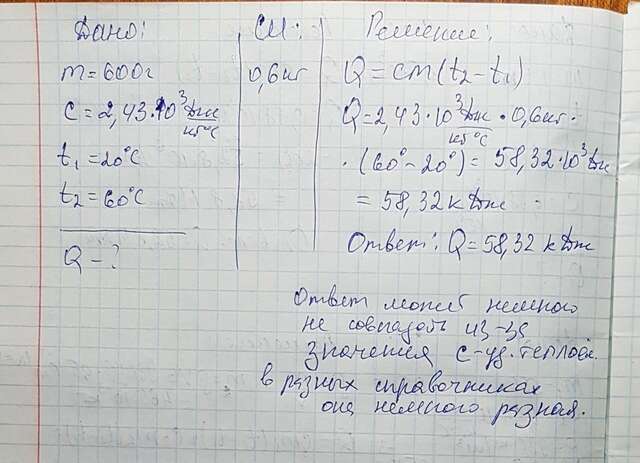 Дано:
m = 600г
c = 2,43·10³ Дж/кг°C
t₁ = 20°C
t₂ = 60°C
Q - ?
СИ:
0,6 кг
Решение:
Q = cm(t₂ - t₁)
Q = 2,43·10³ Дж/кг°C · 0,6 кг ·
· (60° - 20°) = 58,32·10³ Дж
= 58,32 кДж
Ответ: Q = 58,32 кДж
Ответ может немного
не совпадать из-за
значения c-уд. теплоем.
в разных справочниках
она немного разная.